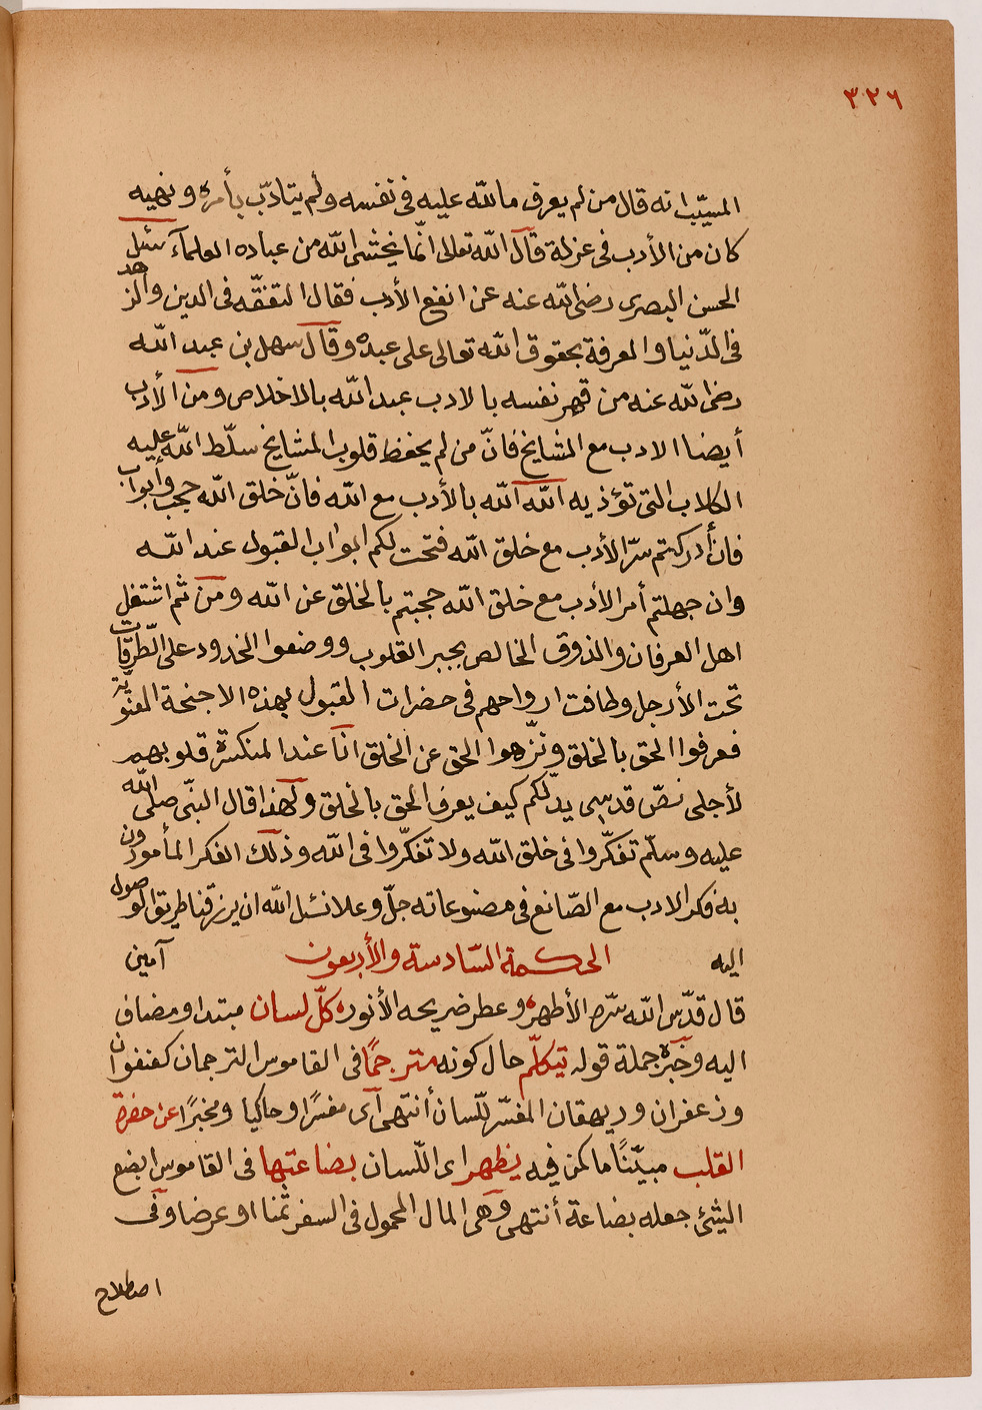 ٣٢٦
المسيّب انه قال من لم يعرف ما لله عليه فى نفسه ولم يتادّب بأمره ونهيه
كان من الأدب فى عزلة قال الله تعالى انّما يخشى الله من عباده العلمآء سئل
الحسن البصرى رضى الله عنه عن انفع الأدب فقال التفقّه فى الدين والزهد
فى الدّنيا والمعرفة بحقوق الله تعالى على عبده وقال سهل بن عبد الله
رضى الله عنه من قهر نفسه بالادب عبد الله بالاخلاص ومن الأدب
أيضا الادب مع المشايخ فانّ من لم يحفظ قلوب المشايخ سلّط الله عليه
الكلاب التى تؤذيه الله الله بالأدب مع الله فانّ خلق الله حجب وأبواب
فان أدركتم سرّ الأدب مع خلق الله فتحت لكم ابواب القبول عند الله
وان جهلتم أمر الأدب مع خلق الله حجبتم بالخلق عن الله ومن ثم اشتغل
اهل العرفان والذوق الخالص بجبر القلوب ووضعوا الخدود على الطّرقات
تحت الأرجل وطافت ارواحهم فى حضرات القبول بهذه الاجنحة المعنويّة
فعرفوا الحق بالخلق ونزّهوا الحق عن الخلق انا عند المنكسرة قلوبهم
لأجلى نصّ قدسى يدلّكم كيف يعرف الحق بالخلق ولهذا قال النبّى صلى الله
عليه وسلّم تفكّروا فى خلق الله ولا تفكّروا فى الله وذلك الفكر المأمورون
به فكر الادب مع الصّانع فى مصنوعاته جلّ وعلا نسئل الله ان يرزقنا طريق الوصول
اليه الحكمة السّادسة والأربعون آمين
قال قدّس الله سرّه الأطهر وعطر ضريحه الأنور كلّ لسان مبتدا ومضاف
اليه وخبره جملة قوله يتكلّم حال كونه مترجمًا فى القاموس الترجمان كعنفوان
وزعفران وريهقان المفسّر للّسان أنتهى آى مفسرًا وحاكيا ومخبرًا عن حضرة
القلب مبيّنًا ما كمن فيه يظهر اى اللّسان بضاعتها فى القاموس ابضع
الشئ جعله بضاعة أنتهى وهى المال المحمول فى السفر ثمنا او عرضا وفى
اصطلاح